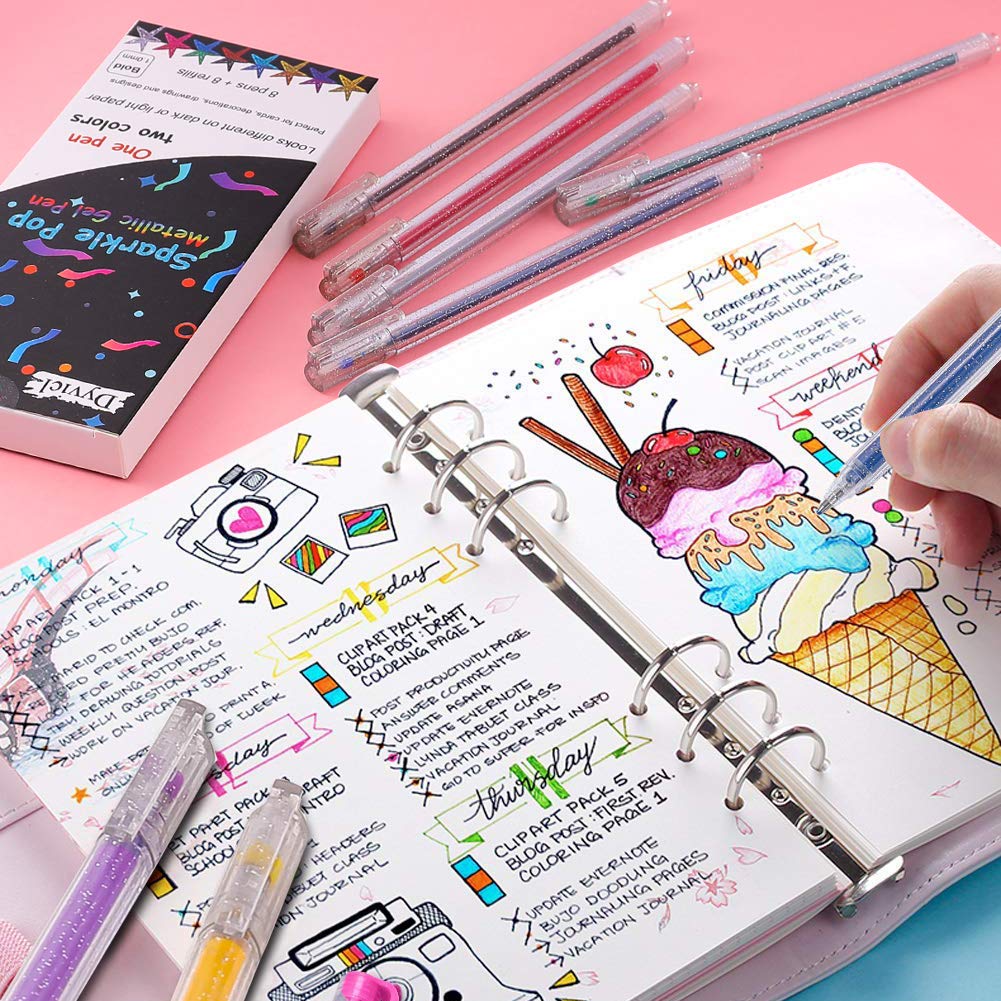 Bold
1.0mm
8 pens + 8 refills
Perfect for cards, decorations, drawings and designs
Looks different on dark or light paper
One pen
two colors
Sparkle Pop
Metallic Gel Pen
Dyvicl
monday
CLIP ART PACK 1+1
BLOG POST PREP.
SCHOOLS: EL MONTRO
HARD TO CHECK COM.
PRETTY BUJO
FOR HEADERS.REF.
DRAWING TUTORIALS
WEEKLY QUESTION POST
WORK ON VACATION JOUR.
PRINT A
OF WEEK
wednesday
CLIPART PACK 4
BLOG POST: DRAFT
COLORING PAGE 1
POST PRODUCTIVITY PAGE
ANSWER COMMENTS
UPDATE ASANA
UPDATE EVERNOTE
LYNDA TABLET CLASS
VACATION JOURNAL
GO TO SUPER FOR INSPO
day
PART PACK
BLOG POST
DRAFT
HEADERS
TABLET CLASS
JOURNAL
thursday
CLIPART PACK 5
BLOG POST: FIRST REV.
COLORING PAGE 1
UPDATE EVERNOTE
BUJO DOODLING
JOURNALING PAGES
VACATION JOURNAL
friday
COMMISSION FINAL RES.
BLOG POST: LINKS+F.
JOURNALING PAGES
VACATION JOURNAL
POST CLIPART #5
SCAN IMAGES
weekend
BLOG